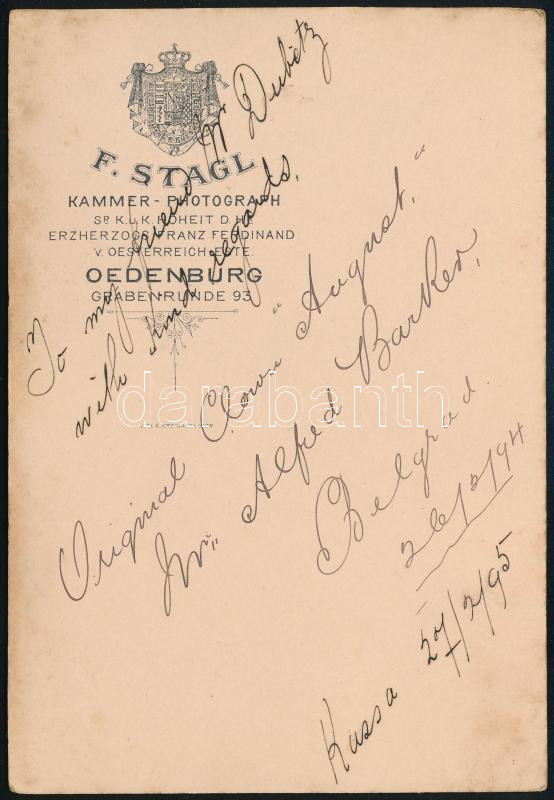 F. STAGL
KAMMER-PHOTOGRAPH
SR. K.U.K. HOHEIT D. HR.
ERZHERZOGS FRANZ FERDINAND
V. OESTERREICH-ESTE.
OEDENBURG
GRABENRUNDE 93.
To my friend Mr Dubetz
with kind regards.
Original Clown "August."
Mr. Alfred Barker.
Belgrad.
Kassa 27/2/95
darabanth